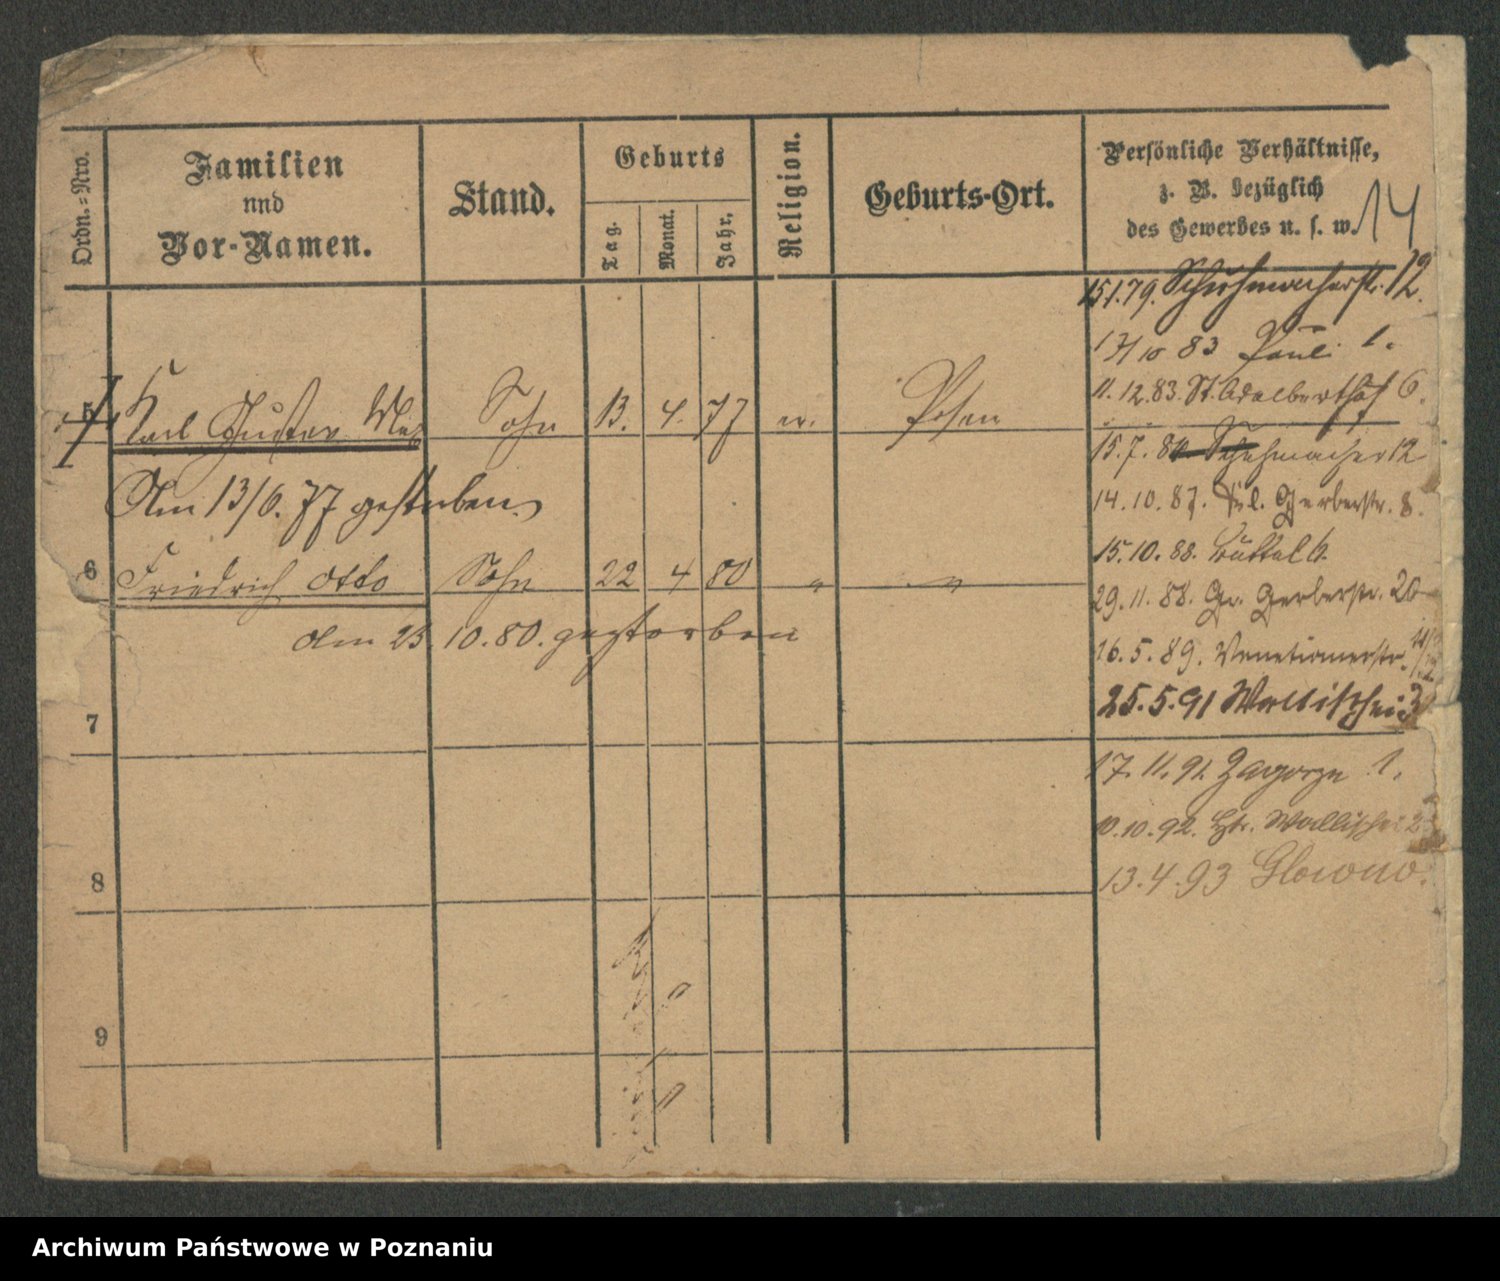 Ordn.-Nro.
Familien
und
Vor-Namen.
Stand.
Geburts
Tag.
Monat.
Jahr.
Religion.
Geburts-Ort.
Persönliche Verhältnisse,
z. B. bezüglich
des Gewerbes u. s. w.
14
15.1.79. Schuhmacherstr. 12.
17/10 83 Pauli 1.
11.12.83. St. Adalberthof 6.
5 Karl Gustav Sohn 13. 4. 77 ev. Posen
15.7.84 Schuhmacher 12
Am 13/6. 77 gestorben.
14.10.87. Kl. Gerberstr. 8.
15.10.88. Büttel 6.
6 Friedrich Otto Sohn 22 4 80 " "
29.11.88. Gr. Gerberstr. 20
am 23.10.80. gestorben
16.5.89. Venetianerstr.
25.5.91 Wallischei 3
7
17.11.91. Zagorze 1.
10.10.92. Wallischei 2
8
13.4.93 Glowno.
9
Archiwum Państwowe w Poznaniu